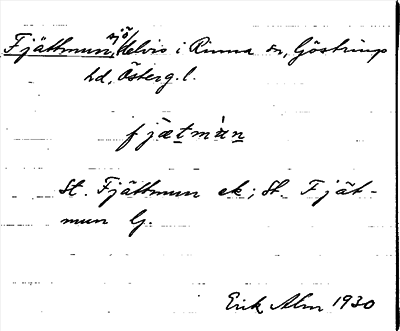 Fjättmun, sjö, delvis i Rinna sn, Göstrings
hd, Österg. l.
fjætmùn
St. Fjättmun ek; St. Fjät-
mun G.
Erik Alm 1930